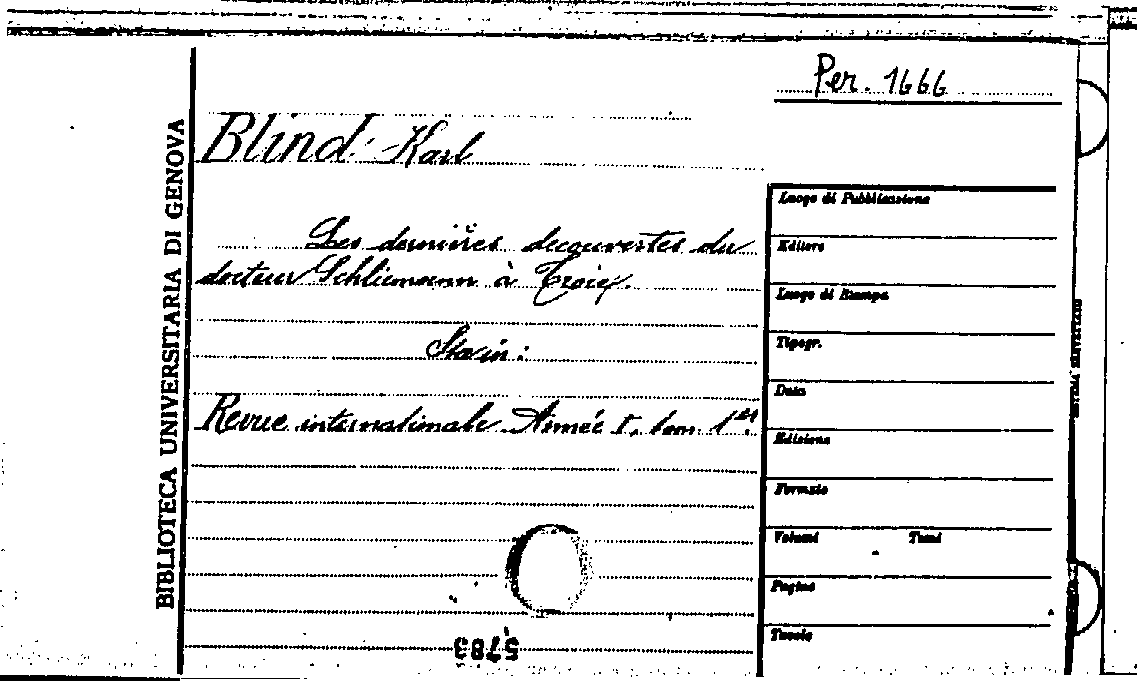 Per. 1666
BIBLIOTECA UNIVERSITARIA DI GENOVA
Blind Karl
Les dernières decouvertes du
docteur Schliemann à Troie.
Sta in:
Revue internationale Année I, tom. 1er
Luogo di Pubblicazione
Editore
Luogo di Stampa
Tipogr.
Data
Edizione
Formato
Volumi Tomi
Pagine
Tavole
5783